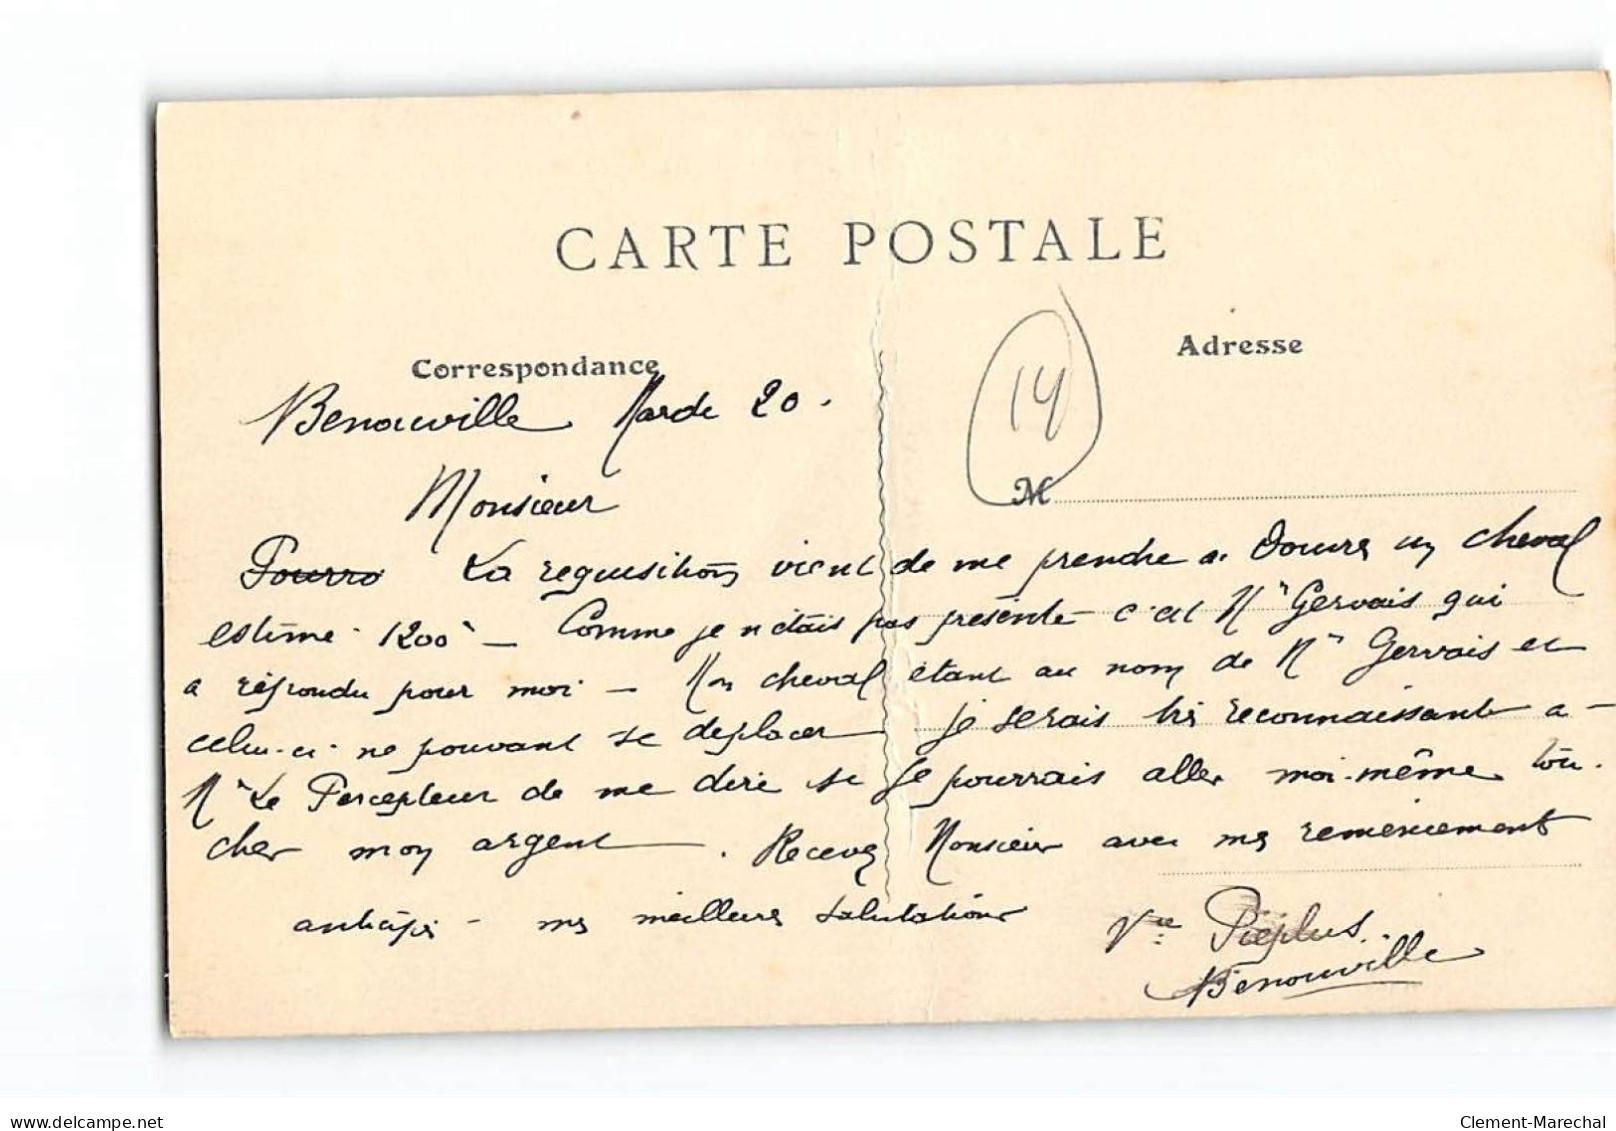 CARTE POSTALE
Correspondance
Adresse
14
M
Benouville Mardi 20.
Monsieur
Pourro La requisition vient de me prendre a Douvres un cheval
estimé 1200 — Comme je n'étais pas présente c'est Mr Gervais qui
a répondu pour moi — Mon cheval étant au nom de Mr Gervais et
celui-ci ne pouvant se déplacer je serais très reconnaissant a
Mr Le Percepteur de me dire si je pourrais aller moi-même tou-
cher mon argent. Recevez Monsieur avec mes remerciement
anticipé - mes meilleures salutations
Vve Pieplus.
Benouville
delcampe.net
Clement-Marechal